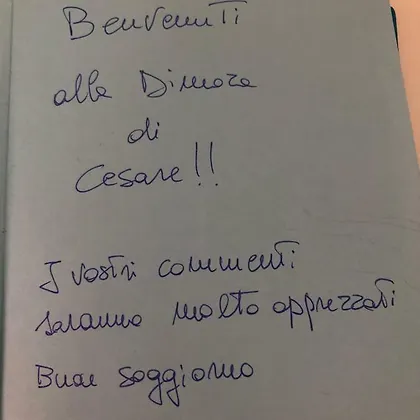 Benvenuti
alla Dimora
di
Cesare!!
I vostri commenti
saranno molto apprezzati
Buon soggiorno